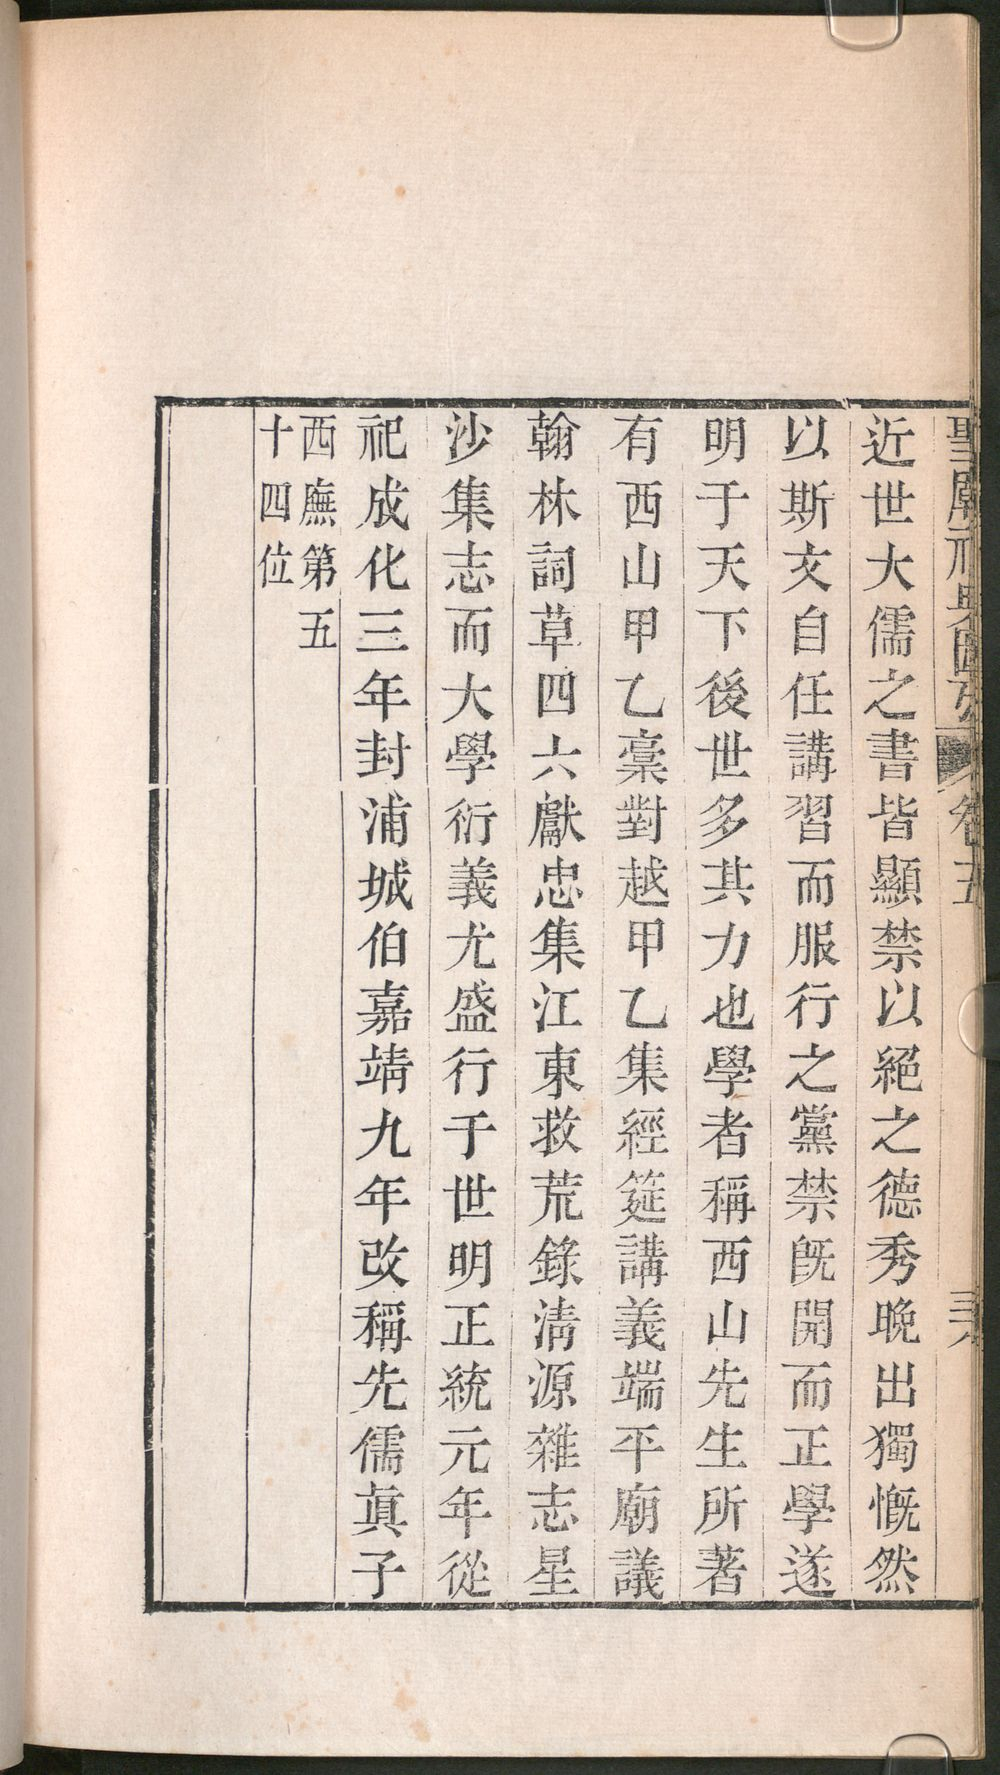 聖廟祀典圖攷 卷五 三八
近世大儒之書皆顯禁以絕之德秀晚出獨慨然
以斯文自任講習而服行之黨禁旣開而正學遂
明于天下後世多其力也學者稱西山先生所著
有西山甲乙稾對越甲乙集經筵講義端平廟議
翰林詞草四六獻忠集江東救荒錄淸源雜志星
沙集志而大學衍義尤盛行于世明正統元年從
祀成化三年封浦城伯嘉靖九年改稱先儒眞子
西廡第五
十四位